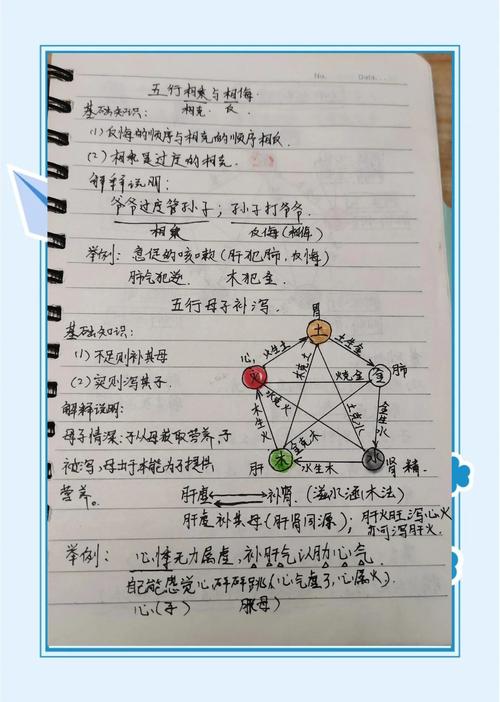 No.
Date.
五行相乘与相侮.
基础知识: 相克 反
(1) 反侮的顺序与相克的顺序相反.
(2) 相乘是过度的相克.
解释说明:
爷爷过度管孙子; 孙子打爷爷.
相乘 反侮(相侮)
举例: 急促的咳嗽(肝犯肺, 反侮)
肺气犯逆. 木犯金.
五行母子补泻.
基础知识:
(1) 不足则补其母
(2) 实则泻其子.
解释说明:
母子情深: 子从母获取营养, 子
被泻, 母出于本能为子提供
营养。
胃
土
火生土
土生金
心
火
木克土
金
肺
烧金
水克火
土克水
木生火
金生水
金克木
木
肝
水生木
水
肾精.
肝虚 补肾(滋水涵木法)
肝虚补其母(肝肾同源); 肝火旺泻心火
亦可泻肝火.
举例: 心悸无力属虚, 补肝气以助心气
自己能感觉心砰砰跳(心气虚了, 心属火).
心(子) 肝(母)